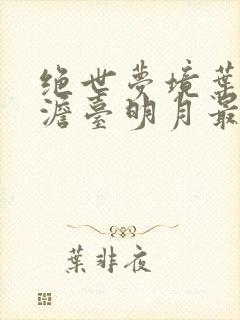 绝世夢境葉
澹臺明月最
葉非夜